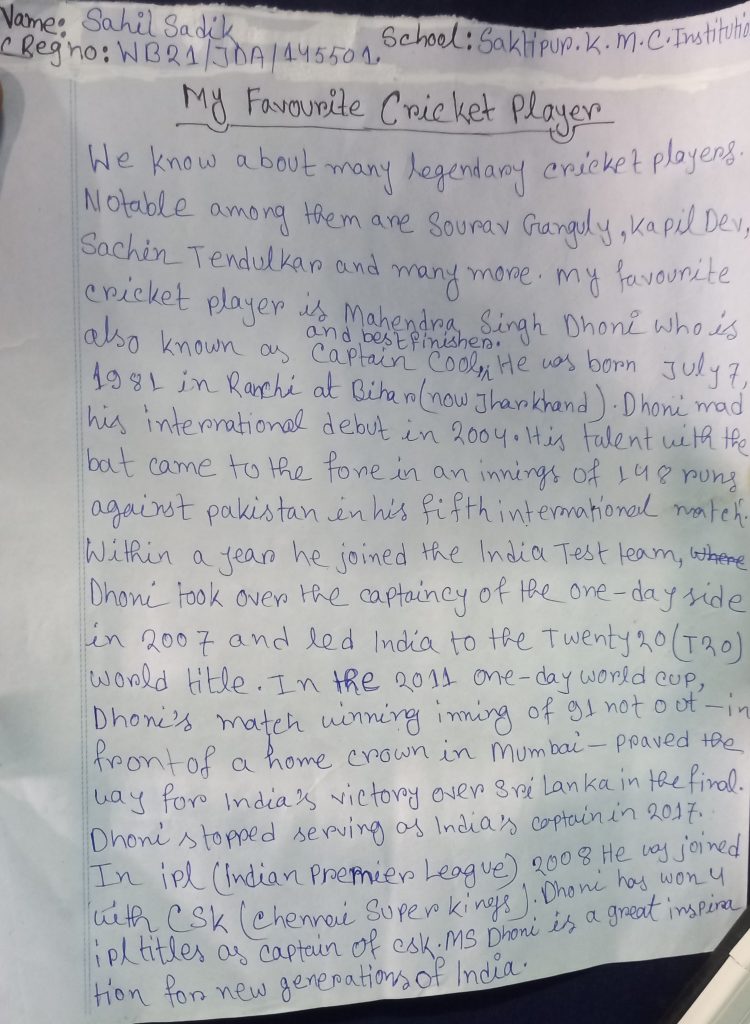 Name: Sahil Sadik
School: Saktipur. K. M. C. Institutio
Reg no: WB21/JDA/145501.
My Favourite Cricket Player
We know about many legendary cricket players.
Notable among them are Sourav Ganguly, Kapil Dev,
Sachin Tendulkar and many more. My favourite
cricket player is Mahendra Singh Dhoni who is
and best finisher.
also known as Captain Cool, He was born July 7,
1981 in Ranchi at Bihar (now Jharkhand). Dhoni mad
his international debut in 2004. His talent with the
bat came to the fore in an innings of 148 runs
against pakistan in his fifth international match.
Within a year he joined the India Test team, where
Dhoni took over the captaincy of the one-day side
in 2007 and led India to the Twenty20 (T20)
world title. In the 2011 one-day world cup,
Dhoni's match winning inning of 91 not out - in
front of a home crown in Mumbai - praved the
way for India's victory over Sri Lanka in the final.
Dhoni stopped serving as India's captain in 2017.
In ipl (Indian Premier League) 2008 He was joined
with CSK (Chennai Super Kings). Dhoni has won 4
ipl titles as captain of csk. MS Dhoni is a great inspira
tion for new generations of India.